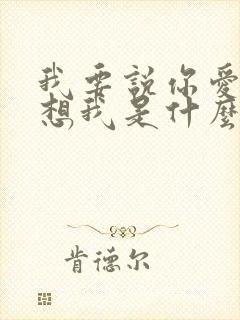 我要说你爱
想我是什麼
肯德尔